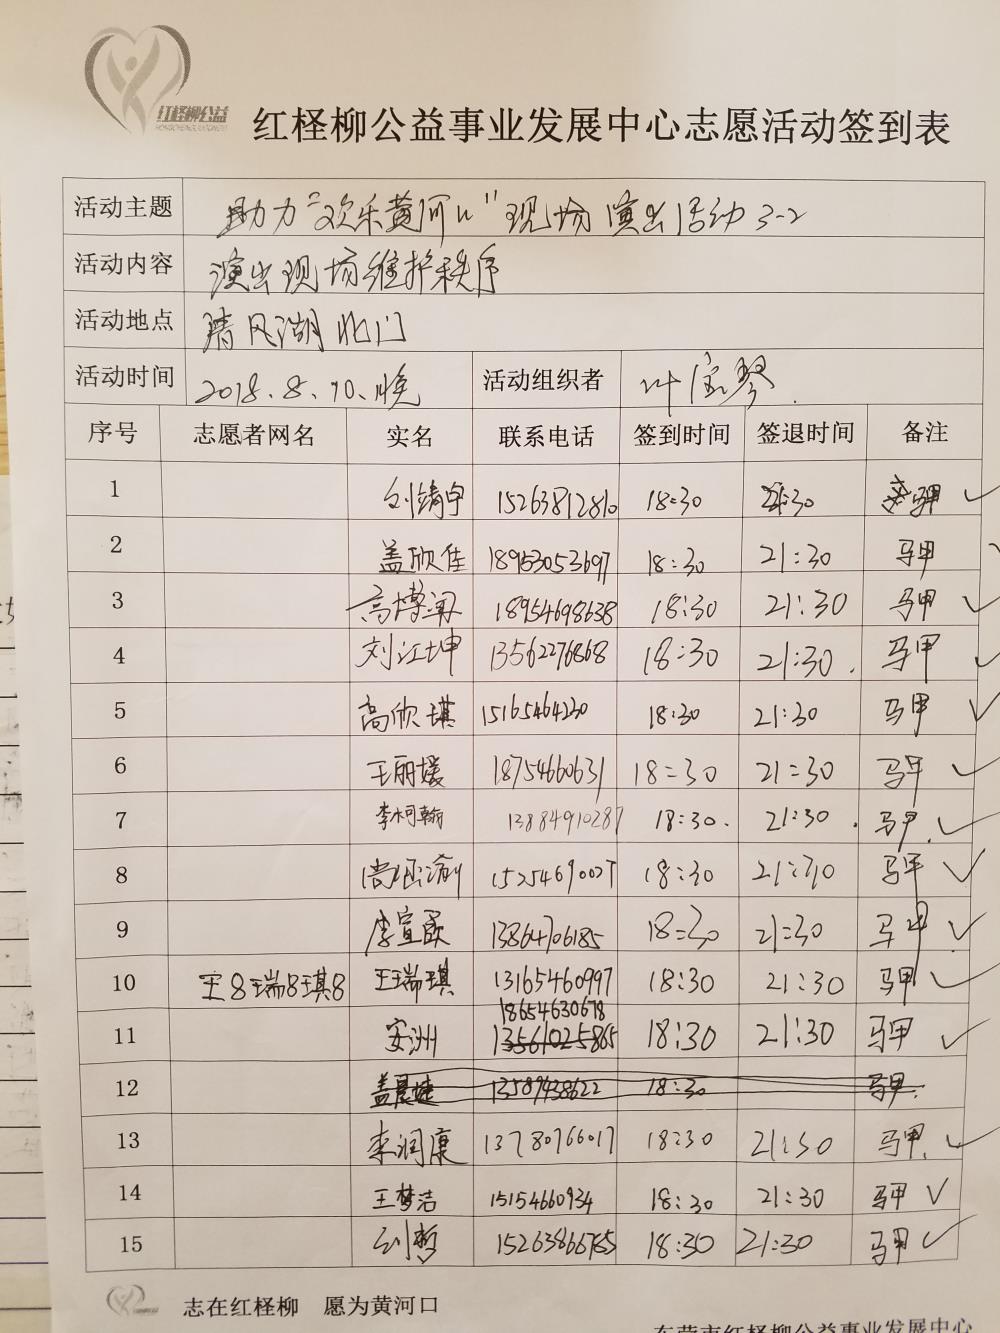 红柽柳公益
红柽柳公益事业发展中心志愿活动签到表
活动主题 助力"欢乐黄河口"现场演出活动3-2
活动内容 演出现场维护秩序
活动地点 清风湖北门
活动时间 2018.8.10.晚 活动组织者 叶宝琴
序号 志愿者网名 实名 联系电话 签到时间 签退时间 备注
1 刘靖宇 15263812810 18:30 21:30 马甲 ✓
2 盖欣佳 18953053697 18:30 21:30 马甲 ✓
3 高博闻 18954698638 18:30 21:30 马甲 ✓
4 刘江坤 13562276868 18:30 21:30. 马甲 ✓
5 高欣琪 15165464230 18:30 21:30 马甲 ✓
6 王丽媛 18754660631 18:30 21:30 马甲 ✓
7 李柯翰 13884910287 18:30. 21:30. 马甲. ✓
8 尚涵渝 15254690027 18:30 21:30 马甲 ✓
9 李宣柔 13864706185 18:30 21:30 马甲 ✓
10 王8瑞8琪8 王瑞琪 13165460997 18:30 21:30 马甲 ✓
18654630678
11 安洲 13561025865 18:30 21:30 马甲 ✓
12 13589438622 18:30 马甲
13 李润康 13780766017 18:30 21:30 马甲. ✓
14 王梦洁 15154660934 18:30 21:30 马甲 ✓
15 刘哲 15263866765 18:30 21:30 马甲 ✓
志在红柽柳 愿为黄河口
东营市红柽柳公益事业发展中心